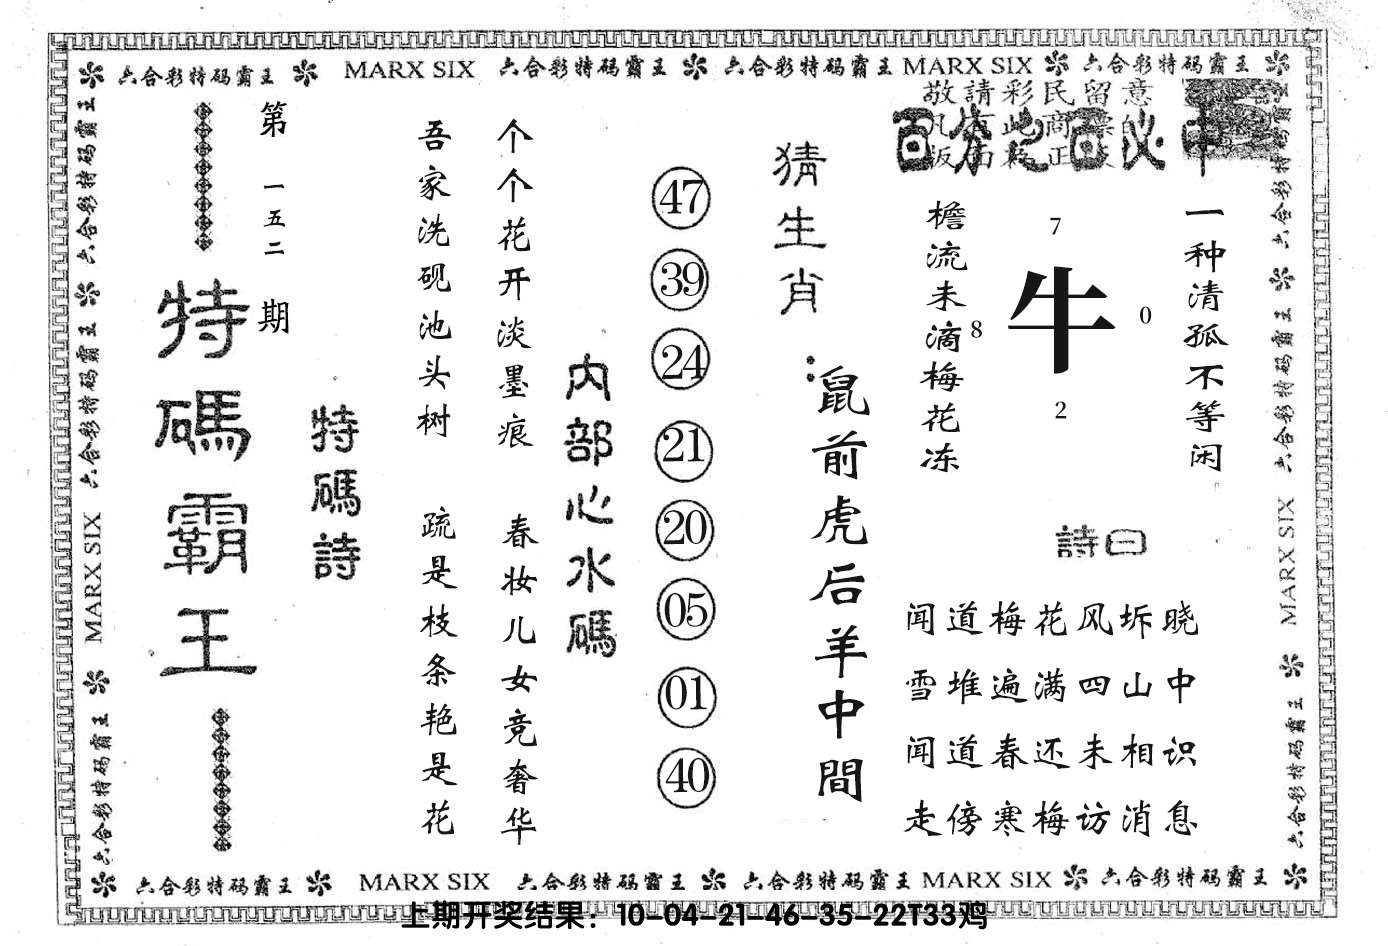 六合彩特码霸王 MARX SIX 六合彩特码霸王 六合彩特码霸王 MARX SIX 六合彩特码霸王
敬請彩民留意
百分之百必中
一种清孤不等闲
檐流未滴梅花冻
7
牛
8
0
2
詩曰
闻道梅花风坼晓
雪堆遍满四山中
闻道春还未相识
走傍寒梅访消息
猜生肖：
鼠前虎后羊中間
47
39
24
21
20
05
01
40
内部心水碼
个个花开淡墨痕
春妆儿女竞奢华
吾家洗砚池头树
疏是枝条艳是花
特碼詩
第一五二期
特碼霸王
六合彩特码霸王 六合彩特码霸王 MARX SIX 六合彩特码霸王
六合彩特码霸王 六合彩特码霸王 MARX SIX 六合彩特码霸王
六合彩特码霸王 MARX SIX 六合彩特码霸王 六合彩特码霸王 MARX SIX 六合彩特码霸王
上期开奖结果：10-04-21-46-35-22T33鸡